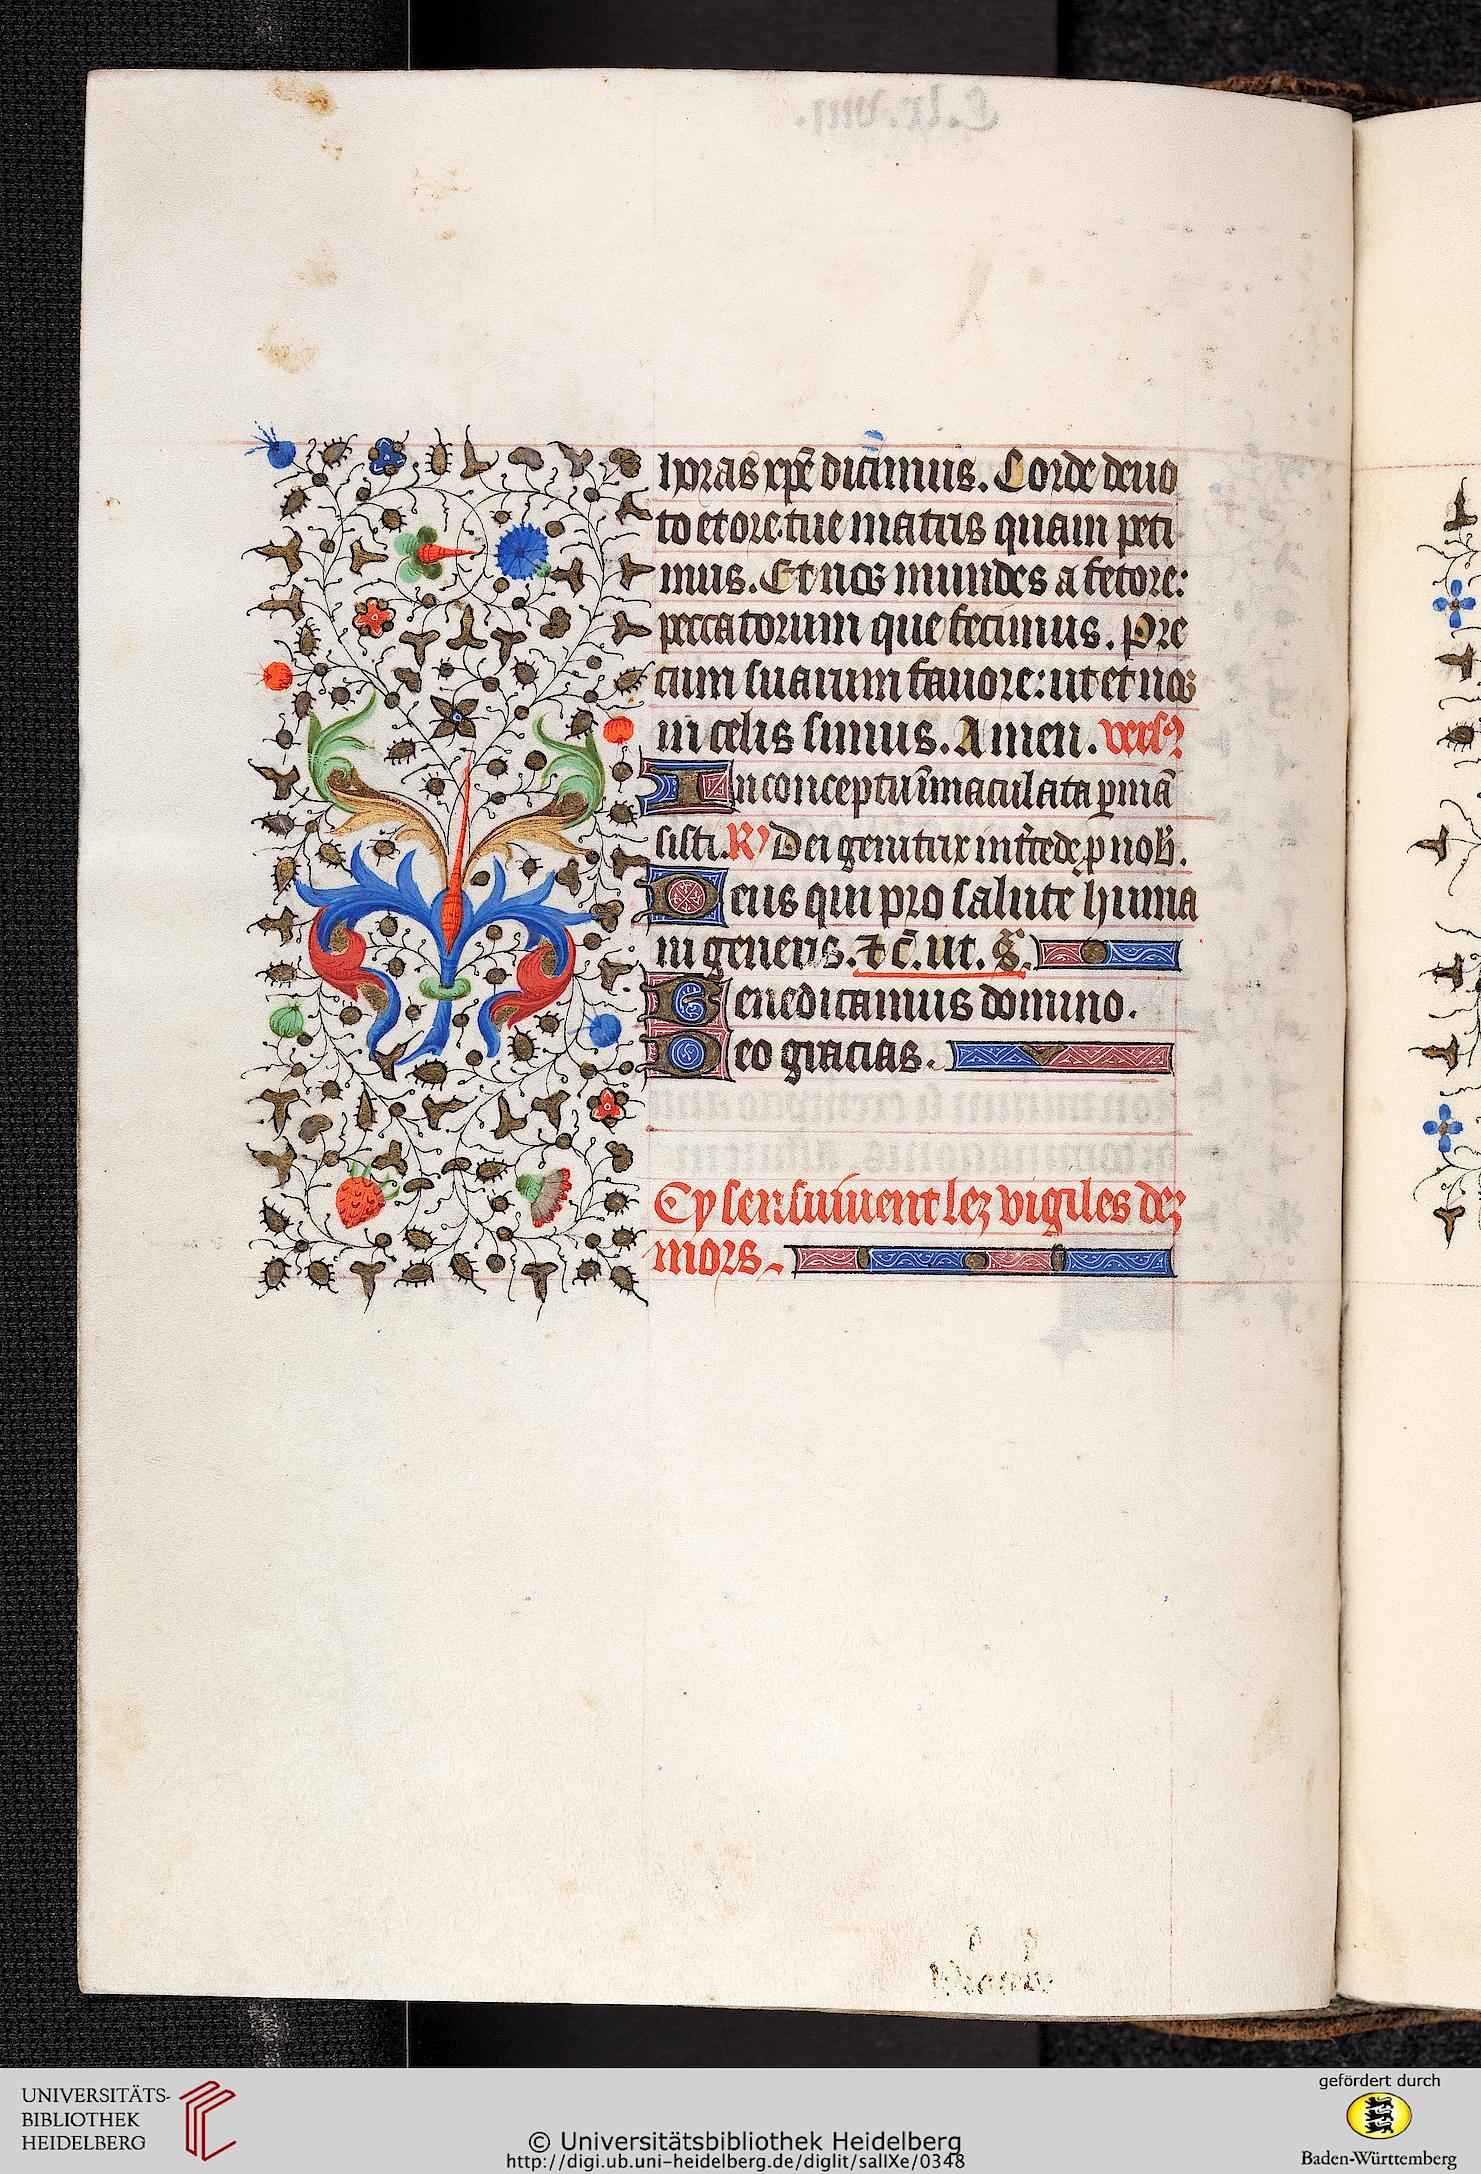 horas xp̄e dicimus. Corde deuo
to et ore tue matris quam peti
mus. Et nos mundes a fetore:
peccatorum que fecimus. Pre
cum suarum fauore: ut et nos
in celis simus. Amen. vers⁹
In conceptu īmaculata p̱mā
sisti. R) Dei genitrix int̄cede p nob̄.
Deus qui pro salute huma
ni generis. ⁊ c̄. ut. s̄.
Benedicamus domino.
Deo gracias.
Cy sen suiuent lez vigiles dez
mors.
UNIVERSITÄTS-
BIBLIOTHEK
HEIDELBERG
© Universitätsbibliothek Heidelberg
http://digi.ub.uni-heidelberg.de/diglit/salIXe/0348
gefördert durch
Baden-Württemberg